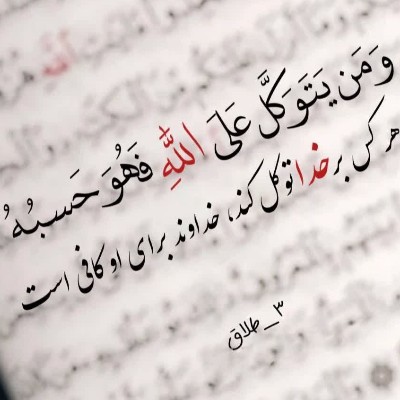 وَمَن يَتَوَكَّل عَلَى اللَّهِ فَهُوَ حَسبُهُ
هر کس بر خدا توکل کند، خداوند برای او کافی است
۳_طلاق